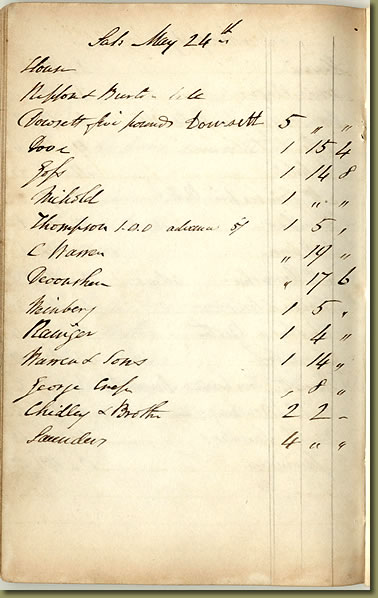 Sat. May 24th
House
& Burton
Dowsett five pounds Dowsett 5 " "
Dove 1 15 4
Goss 1 14 8
Nichold 1 " "
Thompson 1.0.0 advance 5/ 1 5 "
C Warren " 19 "
Devonshire " 17 6
Winberg 1 5 "
1 4 "
Warren & Sons 1 14 "
George " 8 "
Chidley & Brother 2 2 –
Saunders 4 " "